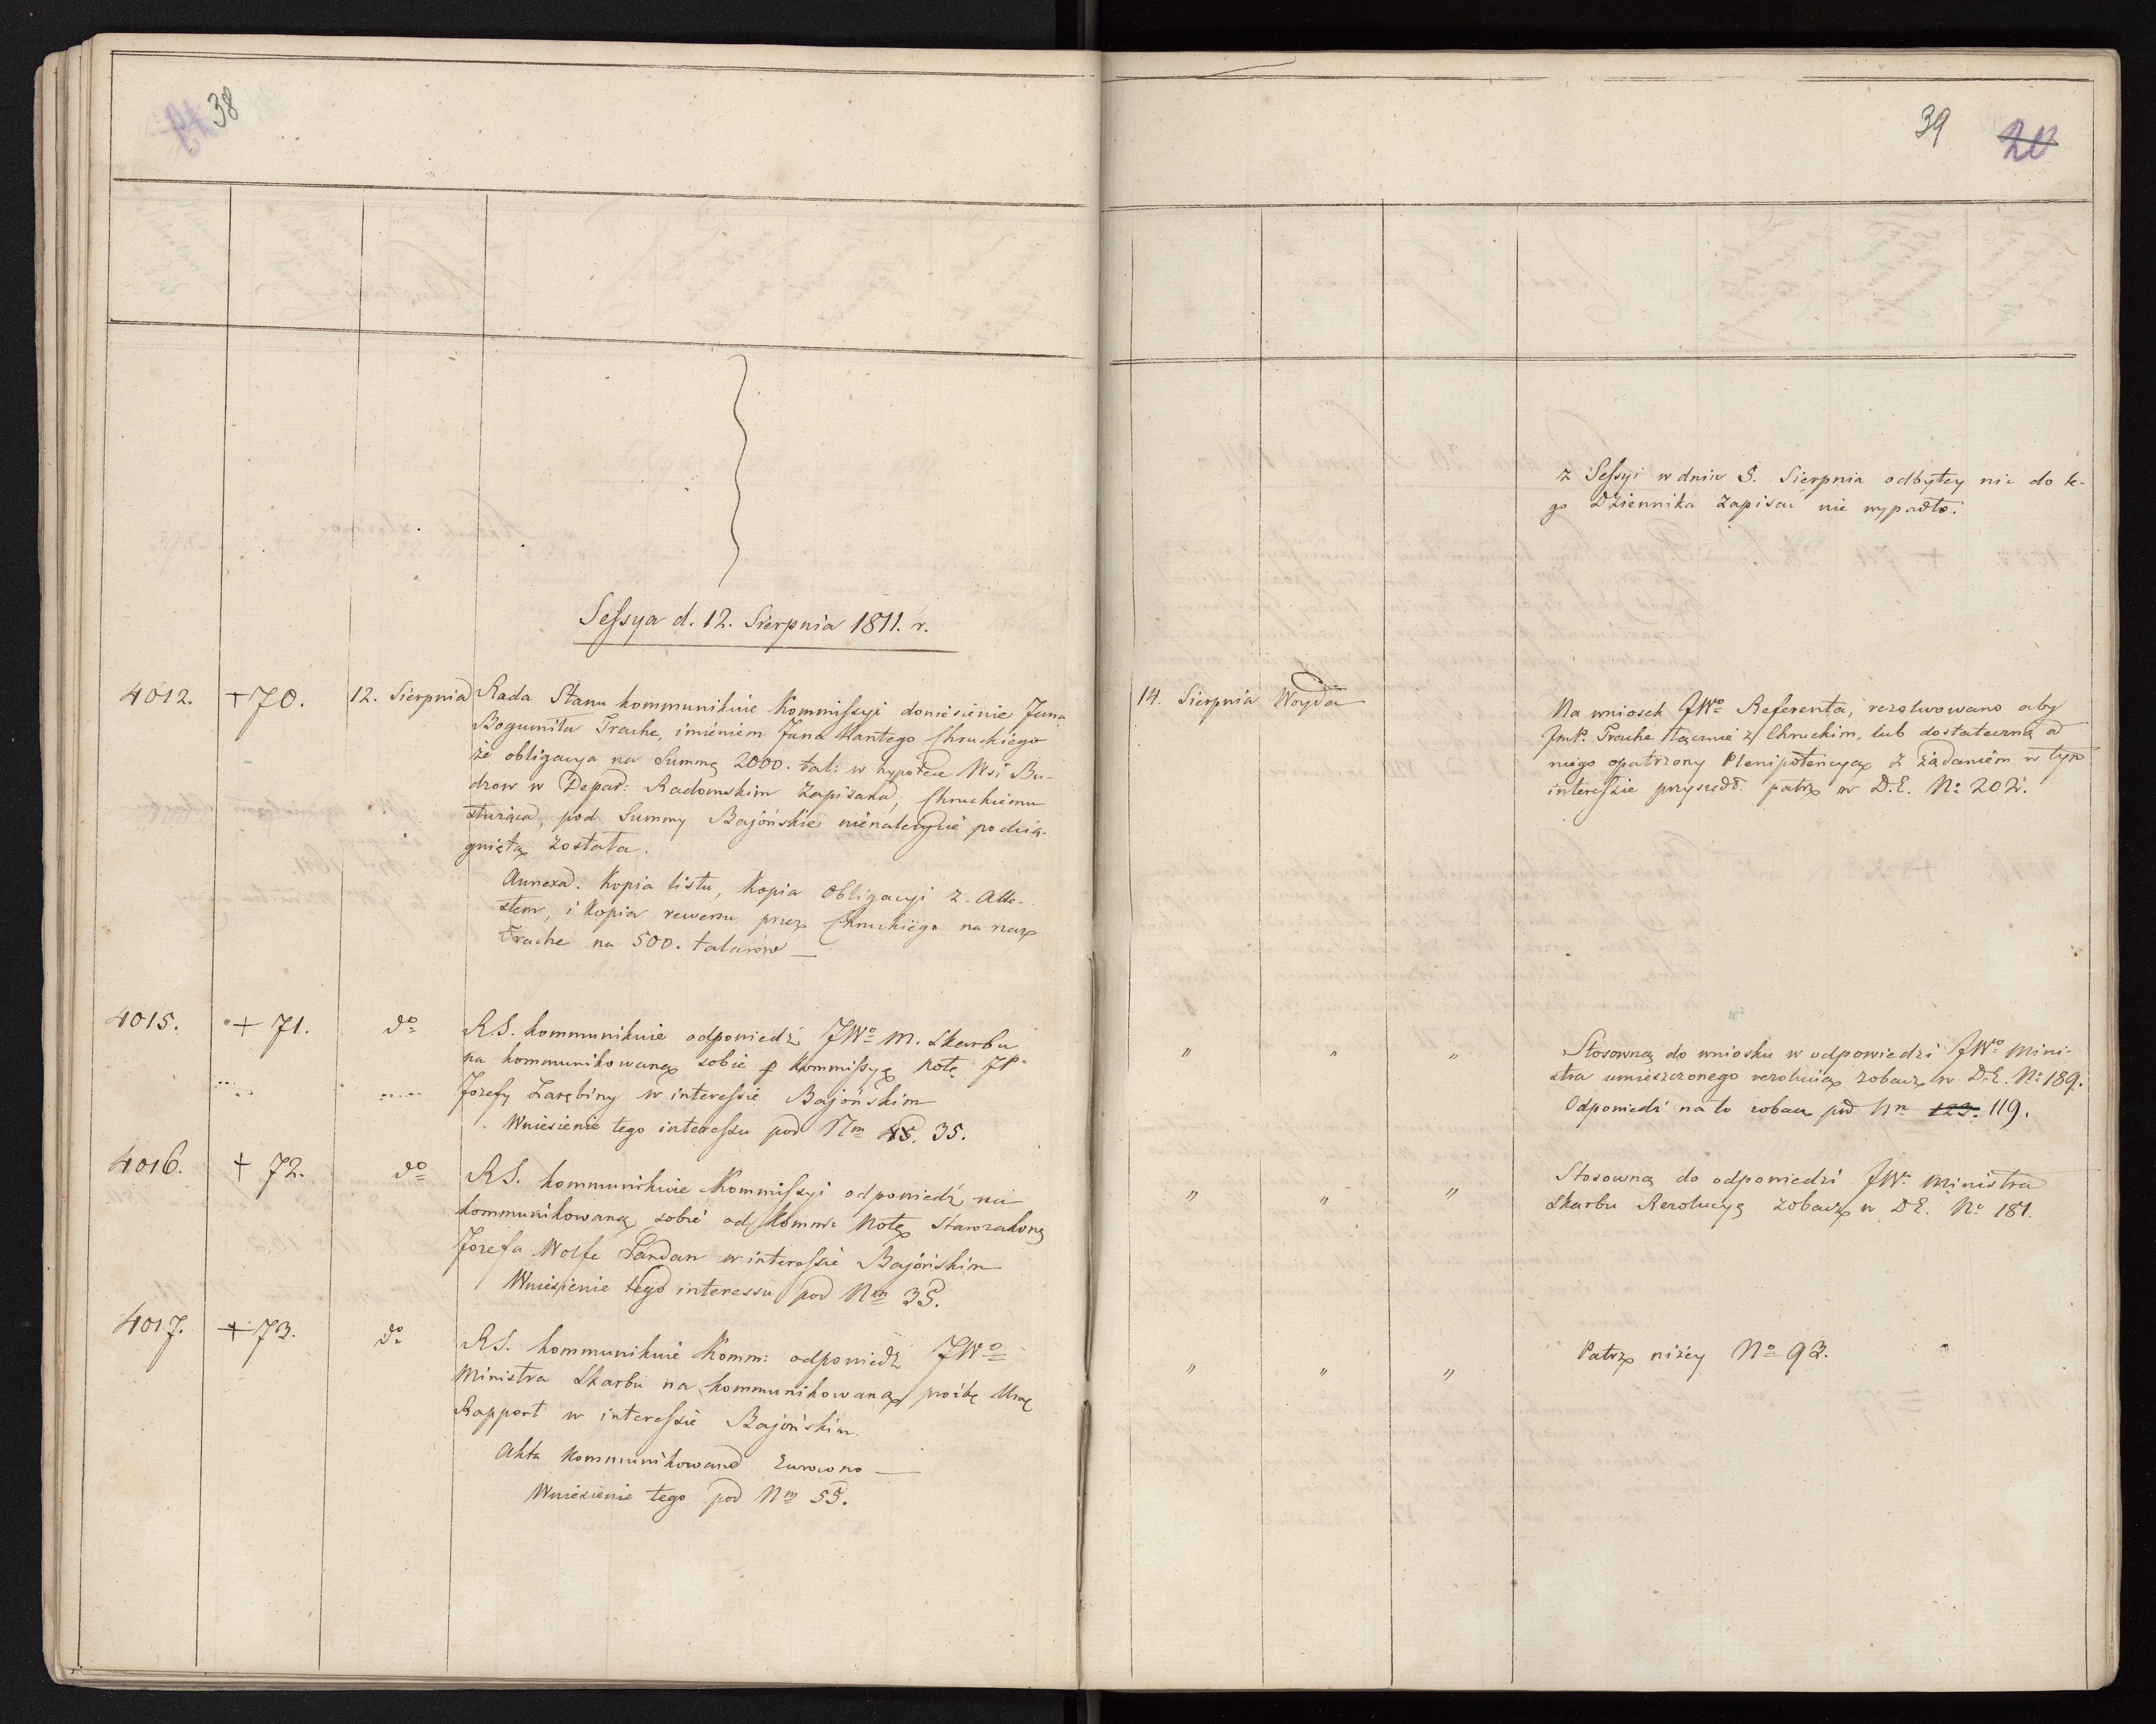 38
39
20
z Sessyi w dniu 5. Sierpnia odbytey nic do te-
go Dziennika zapisać nie wypadło.
Sessya d. 12. Sierpnia 1811. r.
4012. + 70. 12. Sierpnia
Rada Stanu kommunikuie Kommissyi doniesienie Jana
Bogumiła Trache, imieniem Jana Kantego Chruckiego
że obligacya na Summę 2000. tal: w hypotece Wsi Bu-
drow w Depar: Radomskim zapisana, Chruckiemu
służąca, pod Summy Bajońskie nienależycie podcią-
gniętą została.
Annexa. Kopia listu, Kopia Obligacyi z Atte-
stem, i Kopia rewersu przez Chruckiego na rzecz
Trache na 500. talarów —
14. Sierpnia Woyda
Na wniosek JWo Referenta, rezolwowano aby
JmP. Trache łącznie z Chruckim, lub dostateczną od
niego opatrzony Plenipotencyą z żądaniem w tym
interessie przyszedł. patrz w D.E. No 202.
4015. + 71. do
R.S. kommunikuie odpowiedź JWo M. Skarbu
na kommunikowaną sobie p Kommissyą Notę JP.
Józefy Zarębiny w interessie Bajońskim
Wniesienie tego interessu pod Nm 45. 35.
" " "
Stosowną do wniosku w odpowiedzi JWo Mini-
stra umieszczonego rezolucią zobacz w D.E. No 189.
Odpowiedź na to zobacz pod Nm 123. 119.
4016. + 72. do
RS. kommunikuie Kommissyi odpowiedź na
kommunikowaną sobie od Komm: Notę Starozakong
Jozefa Wolfe Landau w interessie Bajońskim
Wniesienie tego interessu pod Nm 35.
" " "
Stosowną do odpowiedzi JWo Ministra
Skarbu Rezolucyą zobacz w D.E. No 181.
4017. + 73. do
RS. kommunikuie Komm: odpowiedź JWo
Ministra Skarbu na kommunikowaną prośbę
Rapport w interessie Bajońskim.
Akta kommunikowane zwrócono —
Wniesienie tego pod Nm 55.
" " "
Patrz niżey No 93.